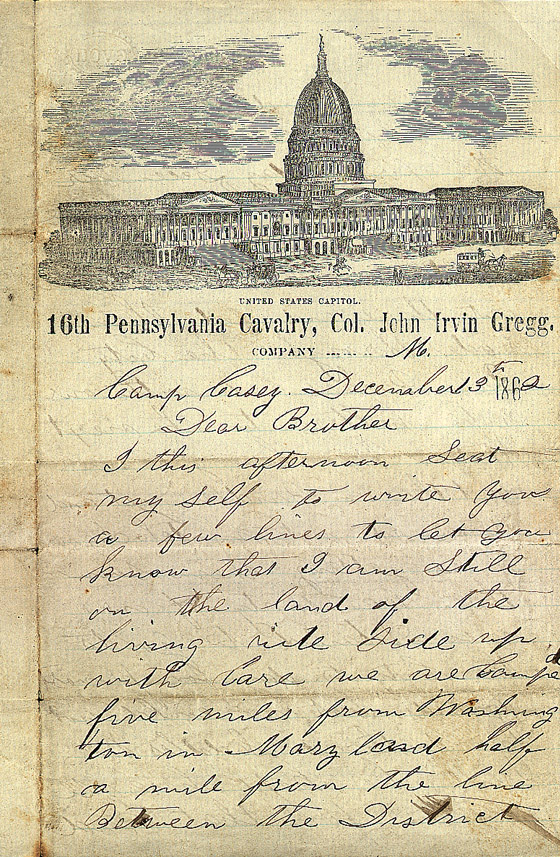 UNITED STATES CAPITOL.
16th Pennsylvania Cavalry, Col. John Irvin Gregg.
COMPANY ......... M.
Camp Casey. December 13th 1862
Dear Brother
I this afternoon Seat
my self to write you
a few lines to let you
know that I am Still
on the land of the
living rite Side up
with Care we are Campe
five miles from Washing
ton in Mary land half
a mile from the line
Between the District